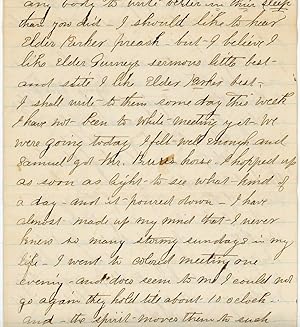 any body to write better in their sleep
than you did - I should like to hear
Elder Parker preach but I believe I
like Elder Gurneys sermons little best -
and still I like Elder Parker best -
I shall write to them some day this week
I have not been to white meeting yet - We
were going today I felt well enough and
Samuel got Mr. horse I hopped up
as soon as light to see what kind of
a day - and it poured down - I have
almost made up my mind that I never
knew so many stormy sundays in my
life - I went to colored meeting one
evening - and does seem to me I could not
go again they hold till about 10 oclock -
and - the spirit moves them to such